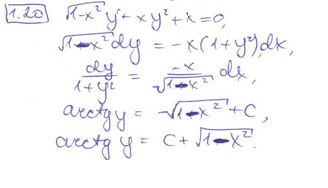 1.20 √1-x² y' + xy² + x = 0,
√1-x² dy = -x(1+y²)dx,
dy/1+y² = -x/√1-x² dx,
arctg y = √1-x² + C,
arctg y = C + √1-x².